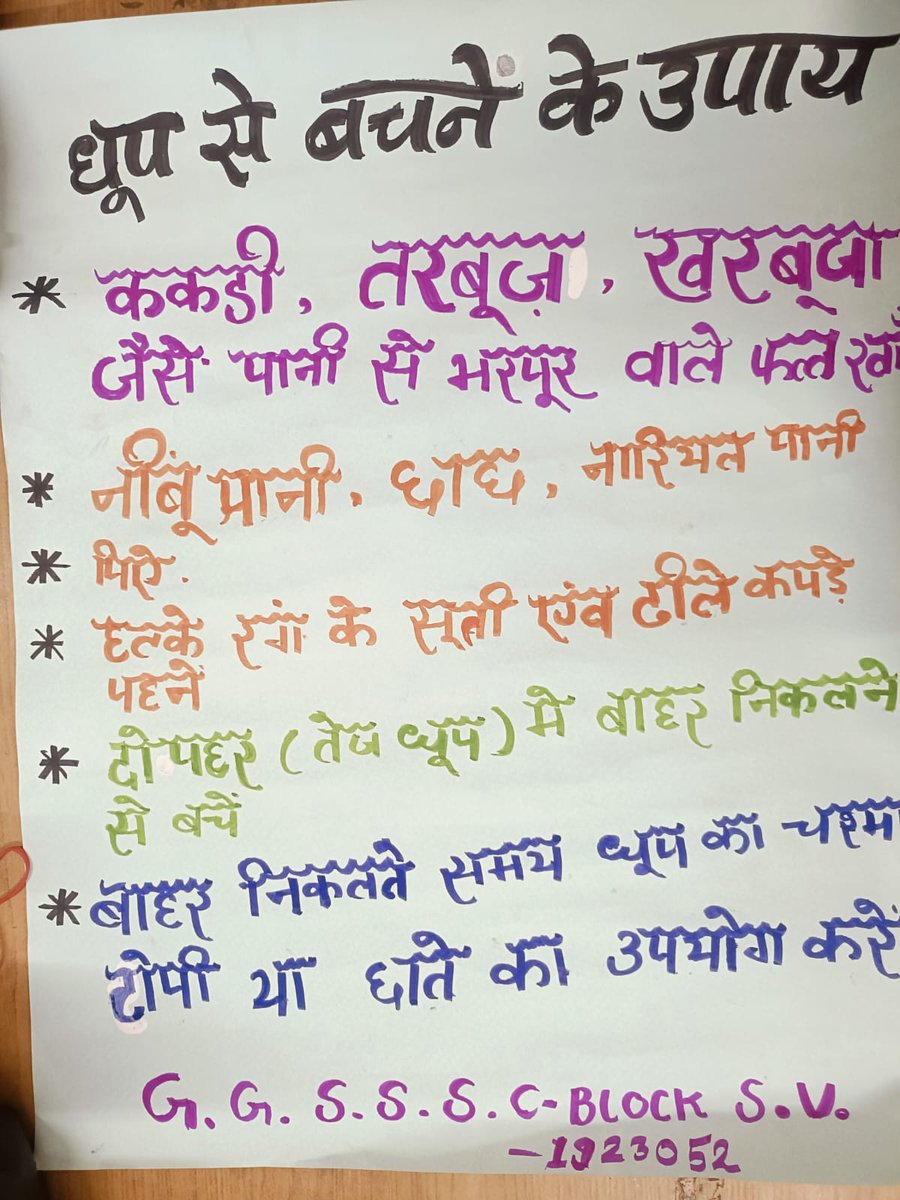 धूप से बचनें के उपाय
* ककडी, तरबूज़, खरबूजा
जैसे पानी से भरपूर वाले फल
* नींबू पानी, छाछ, नारियल पानी
* पिऐ.
* हल्के रंग के सूती एंव ढीले कपड़े
पहनें
* दोपहर (तेज धूप) में बाहर निकलने
से बचें
* बाहर निकलते समय धूप का चश्मा
टोपी या छाते का उपयोग करें
G.G.S.S.S. C-BLOCK S.V.
-1923052